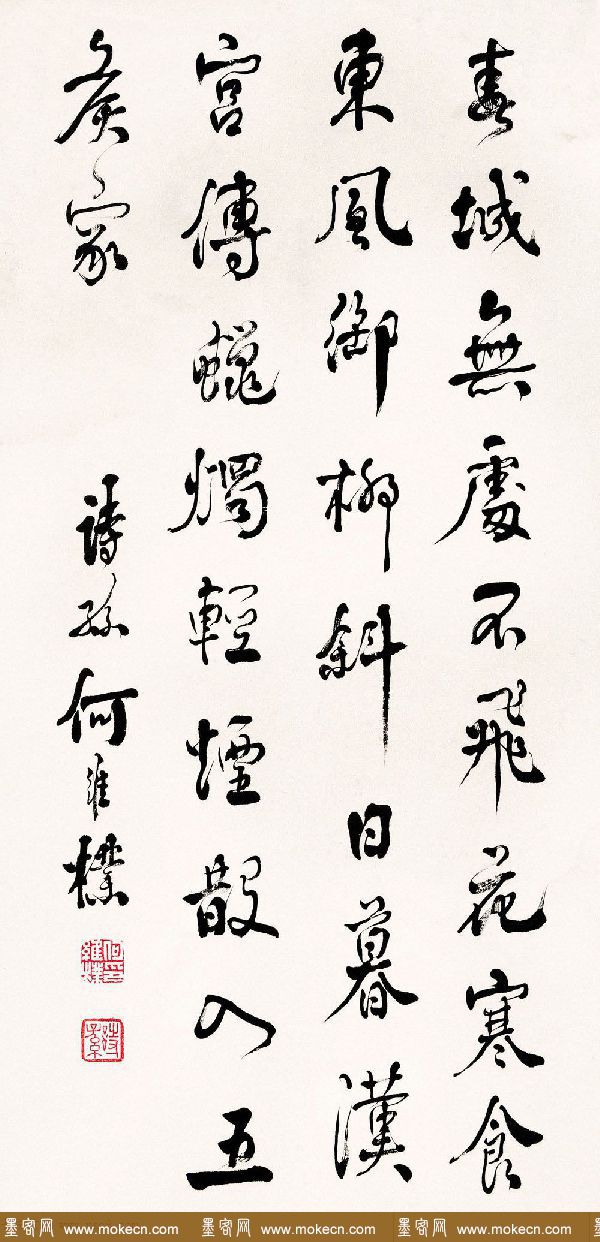 春城無處不飛花寒食
東風御柳斜日暮漢
宮傳蠟燭輕煙散入五
矦家
詩孫何維樸
何印維樸
詩孫
墨客网 www.mokecn.com 墨客网 www.mokecn.com 墨客网 www.mokecn.com